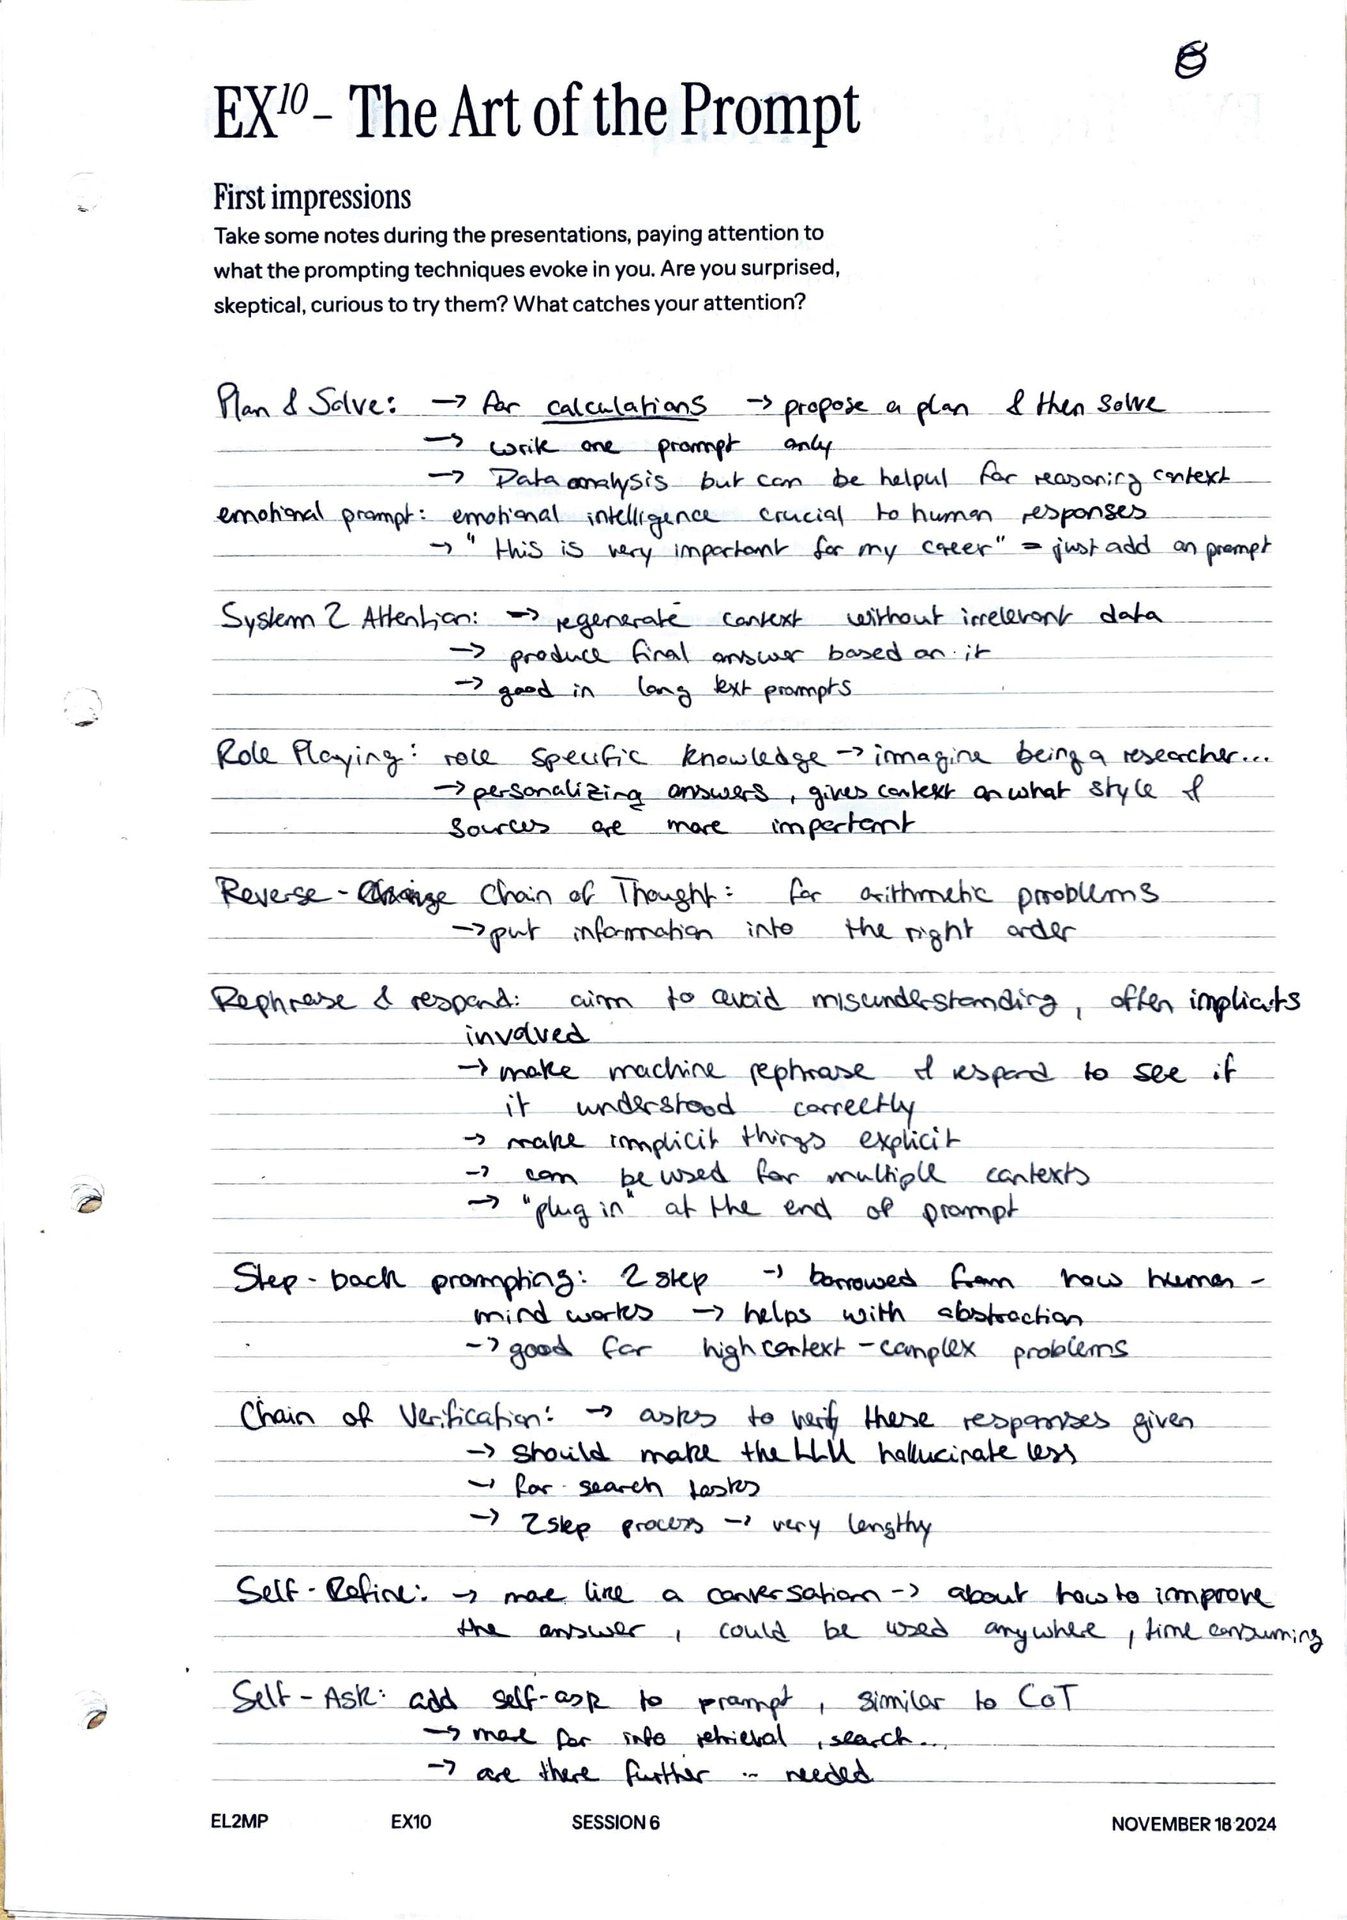 8
EX10 – The Art of the Prompt
First impressions
Take some notes during the presentations, paying attention to
what the prompting techniques evoke in you. Are you surprised,
skeptical, curious to try them? What catches your attention?
Plan & Solve: → for calculations → propose a plan & then solve
→ write one prompt only
→ Data analysis but can be helpul for reasoning context
emotional prompt: emotional intelligence crucial to human responses
→ "this is very important for my career" = just add on prompt
System 2 Attention: → regenerate context without irrelevant data
→ produce final answer based on it
→ good in long text prompts
Role Playing: role specific knowledge → imagine being a researcher...
→ personalizing answers, gives context on what style &
sources are more important
Reverse - Chain of Thought: for arithmetic problems
→ put information into the right order
Rephrase & respond: aim to avoid misunderstanding, often implicits
involved
→ make machine rephrase & respond to see if
it understood correctly
→ make implicit things explicit
→ can be used for multiple contexts
→ "plug in" at the end of prompt
Step-back prompting: 2 step → borrowed from how human -
mind works → helps with abstraction
→ good for high context - complex problems
Chain of Verification: → asks to verify these responses given
→ should make the LLM hallucinate less
→ for search tasks
→ 2 step process → very lengthy
Self-Refine: → more like a conversation → about how to improve
the answer, could be used anywhere, time consuming
Self-Ask: add self-ask to prompt, similar to CoT
→ more for info retrieval, search...
→ are there further ... needed
EL2MP EX10 SESSION 6 NOVEMBER 18 2024